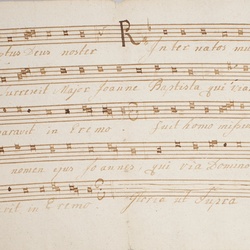 ctus Deus noster R Inter natos mu
Surrexit Major Joanne Baptista qui via
paravit in Eremo Fuit homo missus
nomen ejus Joannes, qui via Domino
vit in Eremo Gloria ut Supra